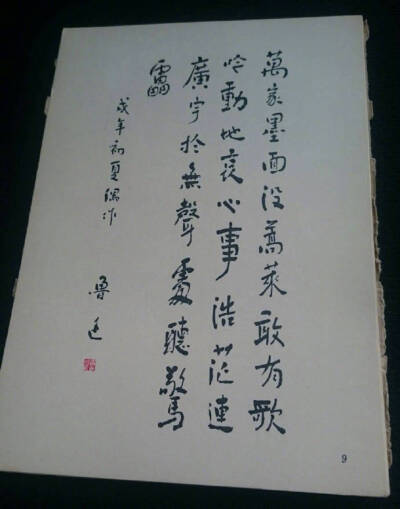 萬家墨面没蒿萊敢有歌
吟動地哀心事浩茫連
廣宇於無聲處聽驚
靁
戌年初夏偶作
魯迅
9